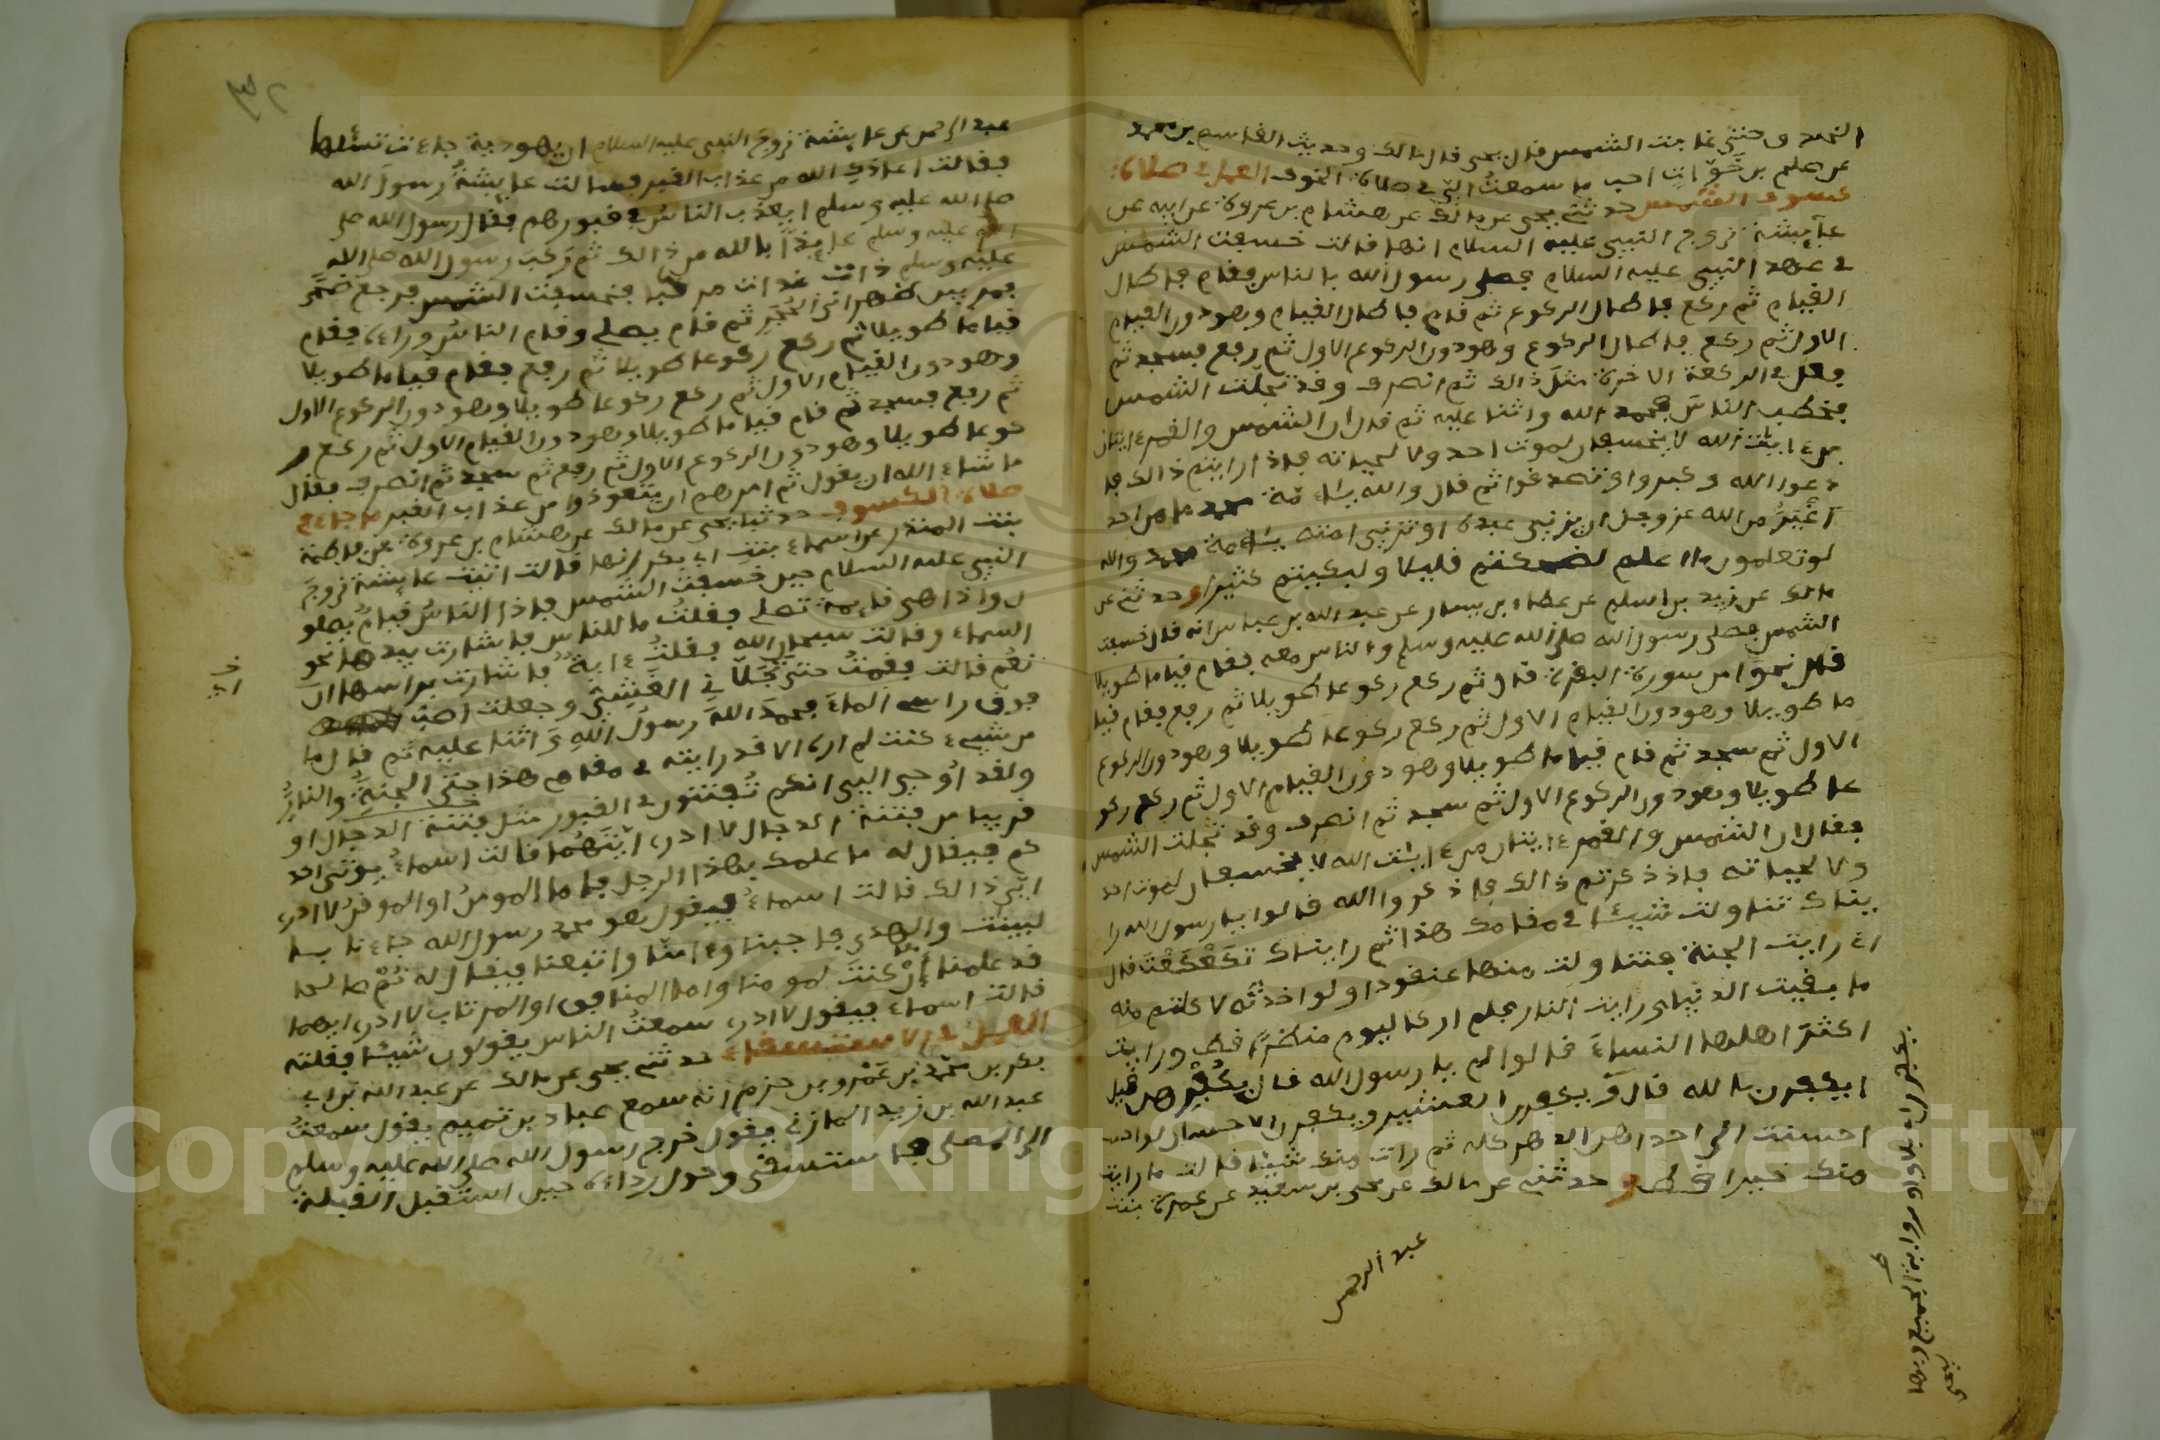 الخندق حتى غابت الشمس قال يحيى قال مالك وحديث القاسم بن محمد
عن صلح بن خَوّاتٍ احب ما سمعتُ اليّ في صلاة الخوف العمل في صلاة
كسوف الشمس حدثني يحيى عن مالك عن هشام بن عروة عن ابيه عن
عآيشة زوج النبيي عليه السلام انها قالت خسفت الشمس
في عهد النبيي عليه السلام فصلى رسول الله بالناس فقام فاطال
القيام ثم ركع فاطال الركوع ثم قام فاطال القيام وهو دون القيام
الاول ثم ركع فاطال الركوع وهو دون الركوع الاول ثم رفع فسجد ثم
فعل في الركعة الاخرة مثل ذالك ثم انصرف وقد تجلّت الشمس
فخطب الناسَ فحمد الله واثنا عليه ثم قال ان الشمس والقمر ءايتان
من ءايت الله لا يخسفان لموت احد ولا لحياته فاذا رايتم ذالك فا
دعوا الله وكبروا وتصدقوا ثم قال والله يا امة محمد ما من احد
أغْيَرُ من الله عز وجل ان يزنيي عبده او تزنيي امته يا امة محمد والله
لو تعلمون ما اعلم لضحكتم قليلا ولبكيتم كثيرا وحدثني عن
مالك عن زيد بن اسلم عن عطاء بن يسار عن عبد الله بن عباس انه قال خسفت
الشمس فصلى رسول الله صلى الله عليه وسلم والناس معه فقام قياما طويلا
قال نحوًا من سورة البقرة قال ثم ركع ركوعا طويلا ثم رفع فقام قيا
ما طويلا وهو دون القيام الاول ثم ركع ركوعا طويلا وهو دون الركوع
الاول ثم سجد ثم قام قياما طويلا وهو دون القيام الاول ثم ركع ركو
عا طويلا وهو دون الركوع الاول ثم سجد ثم انصرف وقد تجلت الشمس
فقال ان الشمس والقمر ءايتان من ءايت الله لا يخسفان لموت احد
ولا لحياته فاذا ذكرتم ذالك فاذكروا الله قالوا يا رسول الله را
يناك تناولت شيئا في مقامك هذا ثم رايناك تكَعْكَعْت قال
اني رايت الجنة فتناولت منها عنقودا ولو اخذته لاكلتم منه
ما بقيت الدنيا ورايت النار فلم ار كاليوم منظرًا قط ورايت
اكثرَ اهلها النساءَ قالوا لم يا رسول الله قال بكُفْرهن قيل
ايكفرن بالله قال ويكفرن العشير ويكفرن الاحسان لو احسنت
احسنت الى احداهن الدهر كله ثم رات منك شيئا قالت ما رايت
منك خيرا قط وحدثني عن مالك عن يحيى بن سعيد عن عمرة بنت
عبد الرحمن
عبد الرحمن عن عايشة زوج النبيي عليه السلام ان يهودية جاءت تسئلها
فقالت اعاذكِ الله من عذاب القبر فسالت عايشةُ رسولَ الله
صلى الله عليه وسلم ايعذب الناسُ في قبورهم فقال رسول الله صلى
الله عليه وسلم عايذًا بالله من ذالك ثم ركب رسول الله صلى الله
عليه وسلم ذات غداة مركبا فخسفت الشمس فرجع ضحًى
فمر بين ظهراني الحُجَرِ ثم قام يصلي وقام الناسُ وراءه فقام
قياما طويلا ثم ركع ركوعا طويلا ثم رفع فقام قياما طويلا
وهو دون القيام الاول ثم ركع ركوعا طويلا وهو دون الركوع الاول
ثم رفع فسجد ثم قام قياما طويلا وهو دون القيام الاول ثم ركع ر
كوعا طويلا وهو دون الركوع الاول ثم رفع ثم سجد ثم انصرف فقال
ما شاء الله ان يقول ثم امرهم ان يتعوذوا من عذاب القبر ما جاء في
صلاة الكسوف حدثنا يحيى عن مالك عن هشام بن عروة عن فاطمة
بنت المنذر عن اسماء بنت ابي بكر انها قالت اتيت عايشة زوجَ
النبيي عليه السلام حين خسفت الشمس فاذا الناسُ قيامٌ يصلو
ن واذا هي قايمة تصلي فقلتُ ما للناس فاشارت بيدها نحو
السماء وقالت سبحان الله فقلتُ ءايةٌ فاشارت براسها ان
نعم قالت فقمتُ حتى تجَلّا ني الغَشْيُ وجعلت اصبُّ
فوق راسي الماءَ فحمدَ اللهَ رسولُ اللهِ واثنا عليه ثم قال ما
من شيء كنت لم اره الا قد رايته في مقامي هذا حتى الجنةُ والنارُ
ولقد اُوحي اليي انكم تُفتنون في القبور مثل فتنة الدجال او
قريبا من فتنة الدجال لا ادري ايَّتَهُما قالت اسماءُ يوتى احد
كم فيقال له ما علمك بهذا الرجل فاما المومن او الموقن لا ادري
ايَّ ذالك قالت اسماءُ فيقول هو محمد رسول الله جاءنا با
لبينت والهدى فاجبنا وءامنا واتبعنا فيقال له نَمْ صالحا
قد علمنا إنْ كنتَ لمومنا واما المنافق او المرتاب لا ادري ايهما
قالت اسماء فيقول لا ادري سمعتُ الناس يقولون شيئا فقلته
العمل في الاستسقاء حدثني يحيى عن مالك عن عبد الله بن ابي
بكر بن محمد بن عَمْرو بن حزم انه سمع عباد بن تميم يقول سمعتُ
عبد الله بن زيد المازني يقول خرج رسول الله صلى الله عليه وسلم
الى المصلى فاستسقى وحول رداءه حين استقبل القبلة
Copyright © King Saud University